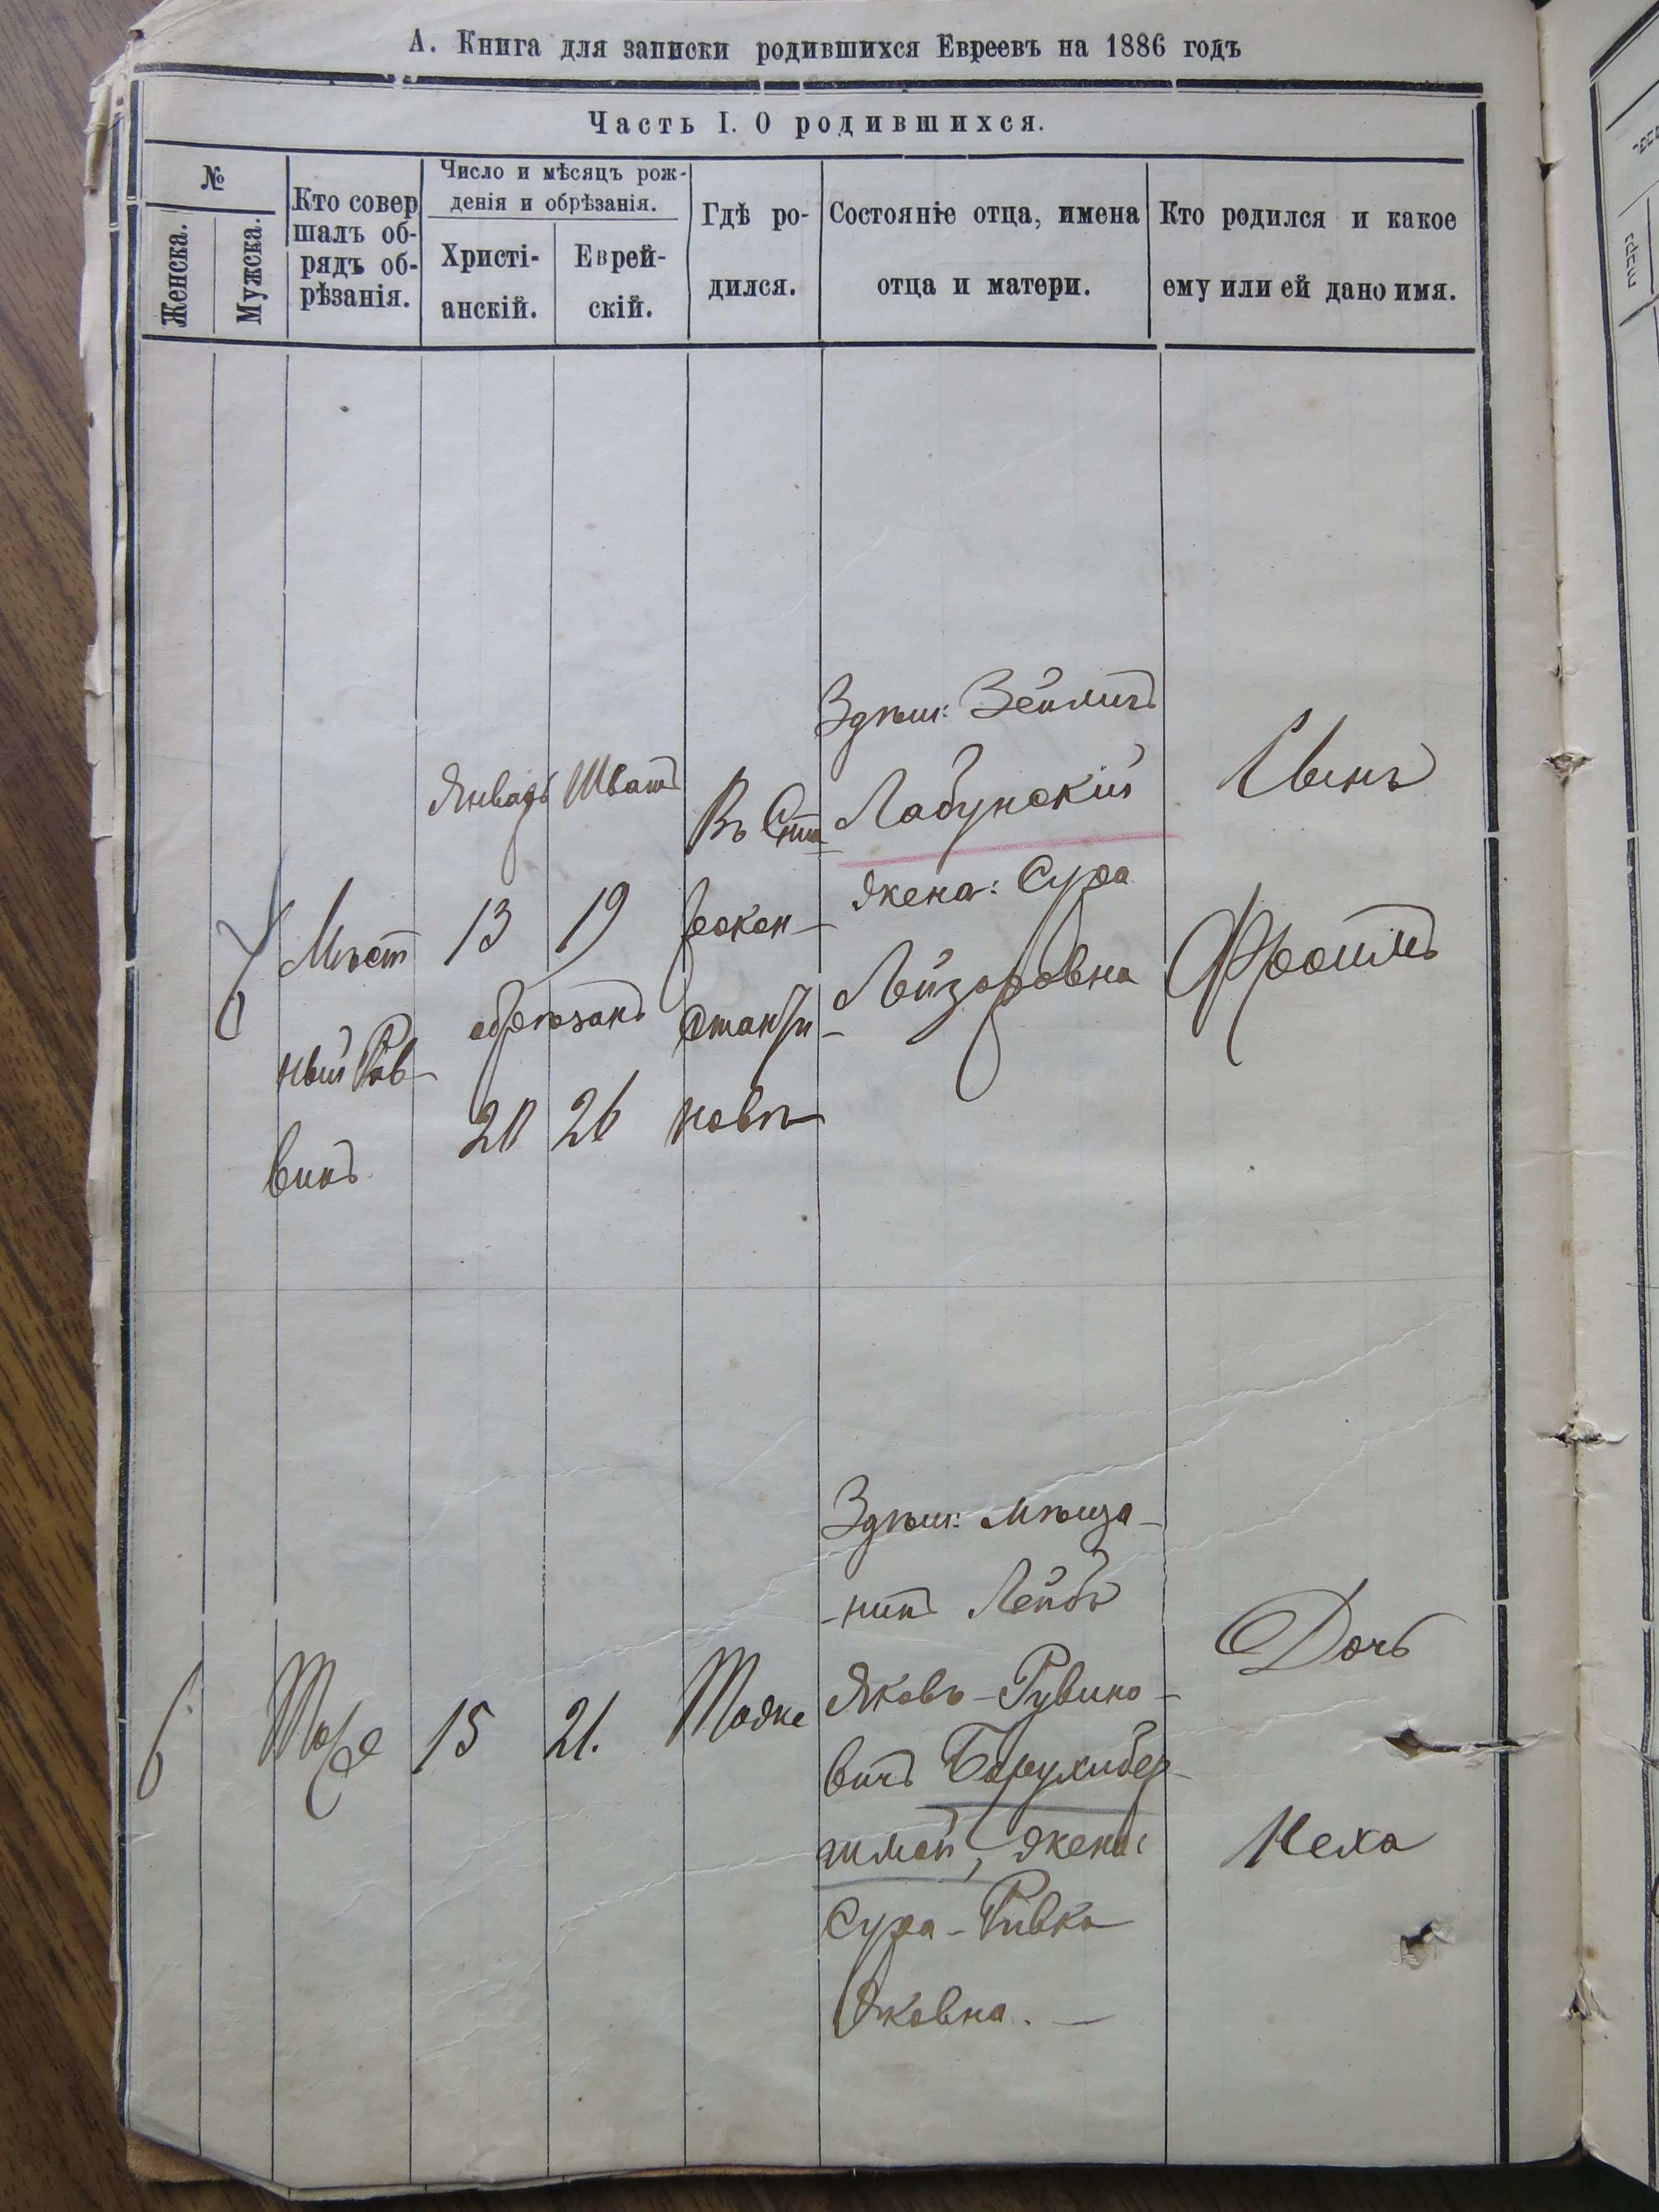 А. Книга для записки родившихся Евреевъ на 1886 годъ
Часть I. О родившихся.
№
Женска.
Мужска.
Кто совер
шалъ об-
рядъ об-
рѣзанія.
Число и мѣсяцъ рож-
денія и обрѣзанія.
Христі-
анскій.
Еврей-
скій.
Гдѣ ро-
дился.
Состояніе отца, имена
отца и матери.
Кто родился и какое
ему или ей дано имя.
7
Мѣст
ный Рав-
винъ
Январь
13
обрѣзанъ
20
Шватъ
19
26
Въ Ста
рокон-
станти-
новѣ
Здѣш:
Лабунскій
жена: Сура
Лейзоровна
Сынъ
Фроимъ
6
Тоже
15
21.
Тоже
Здѣш: мѣща-
-нинъ Лейбъ
Яковъ-Рувино-
вичъ
жена:
Сура-Ривка
Яковна. —
Дочь
Неха